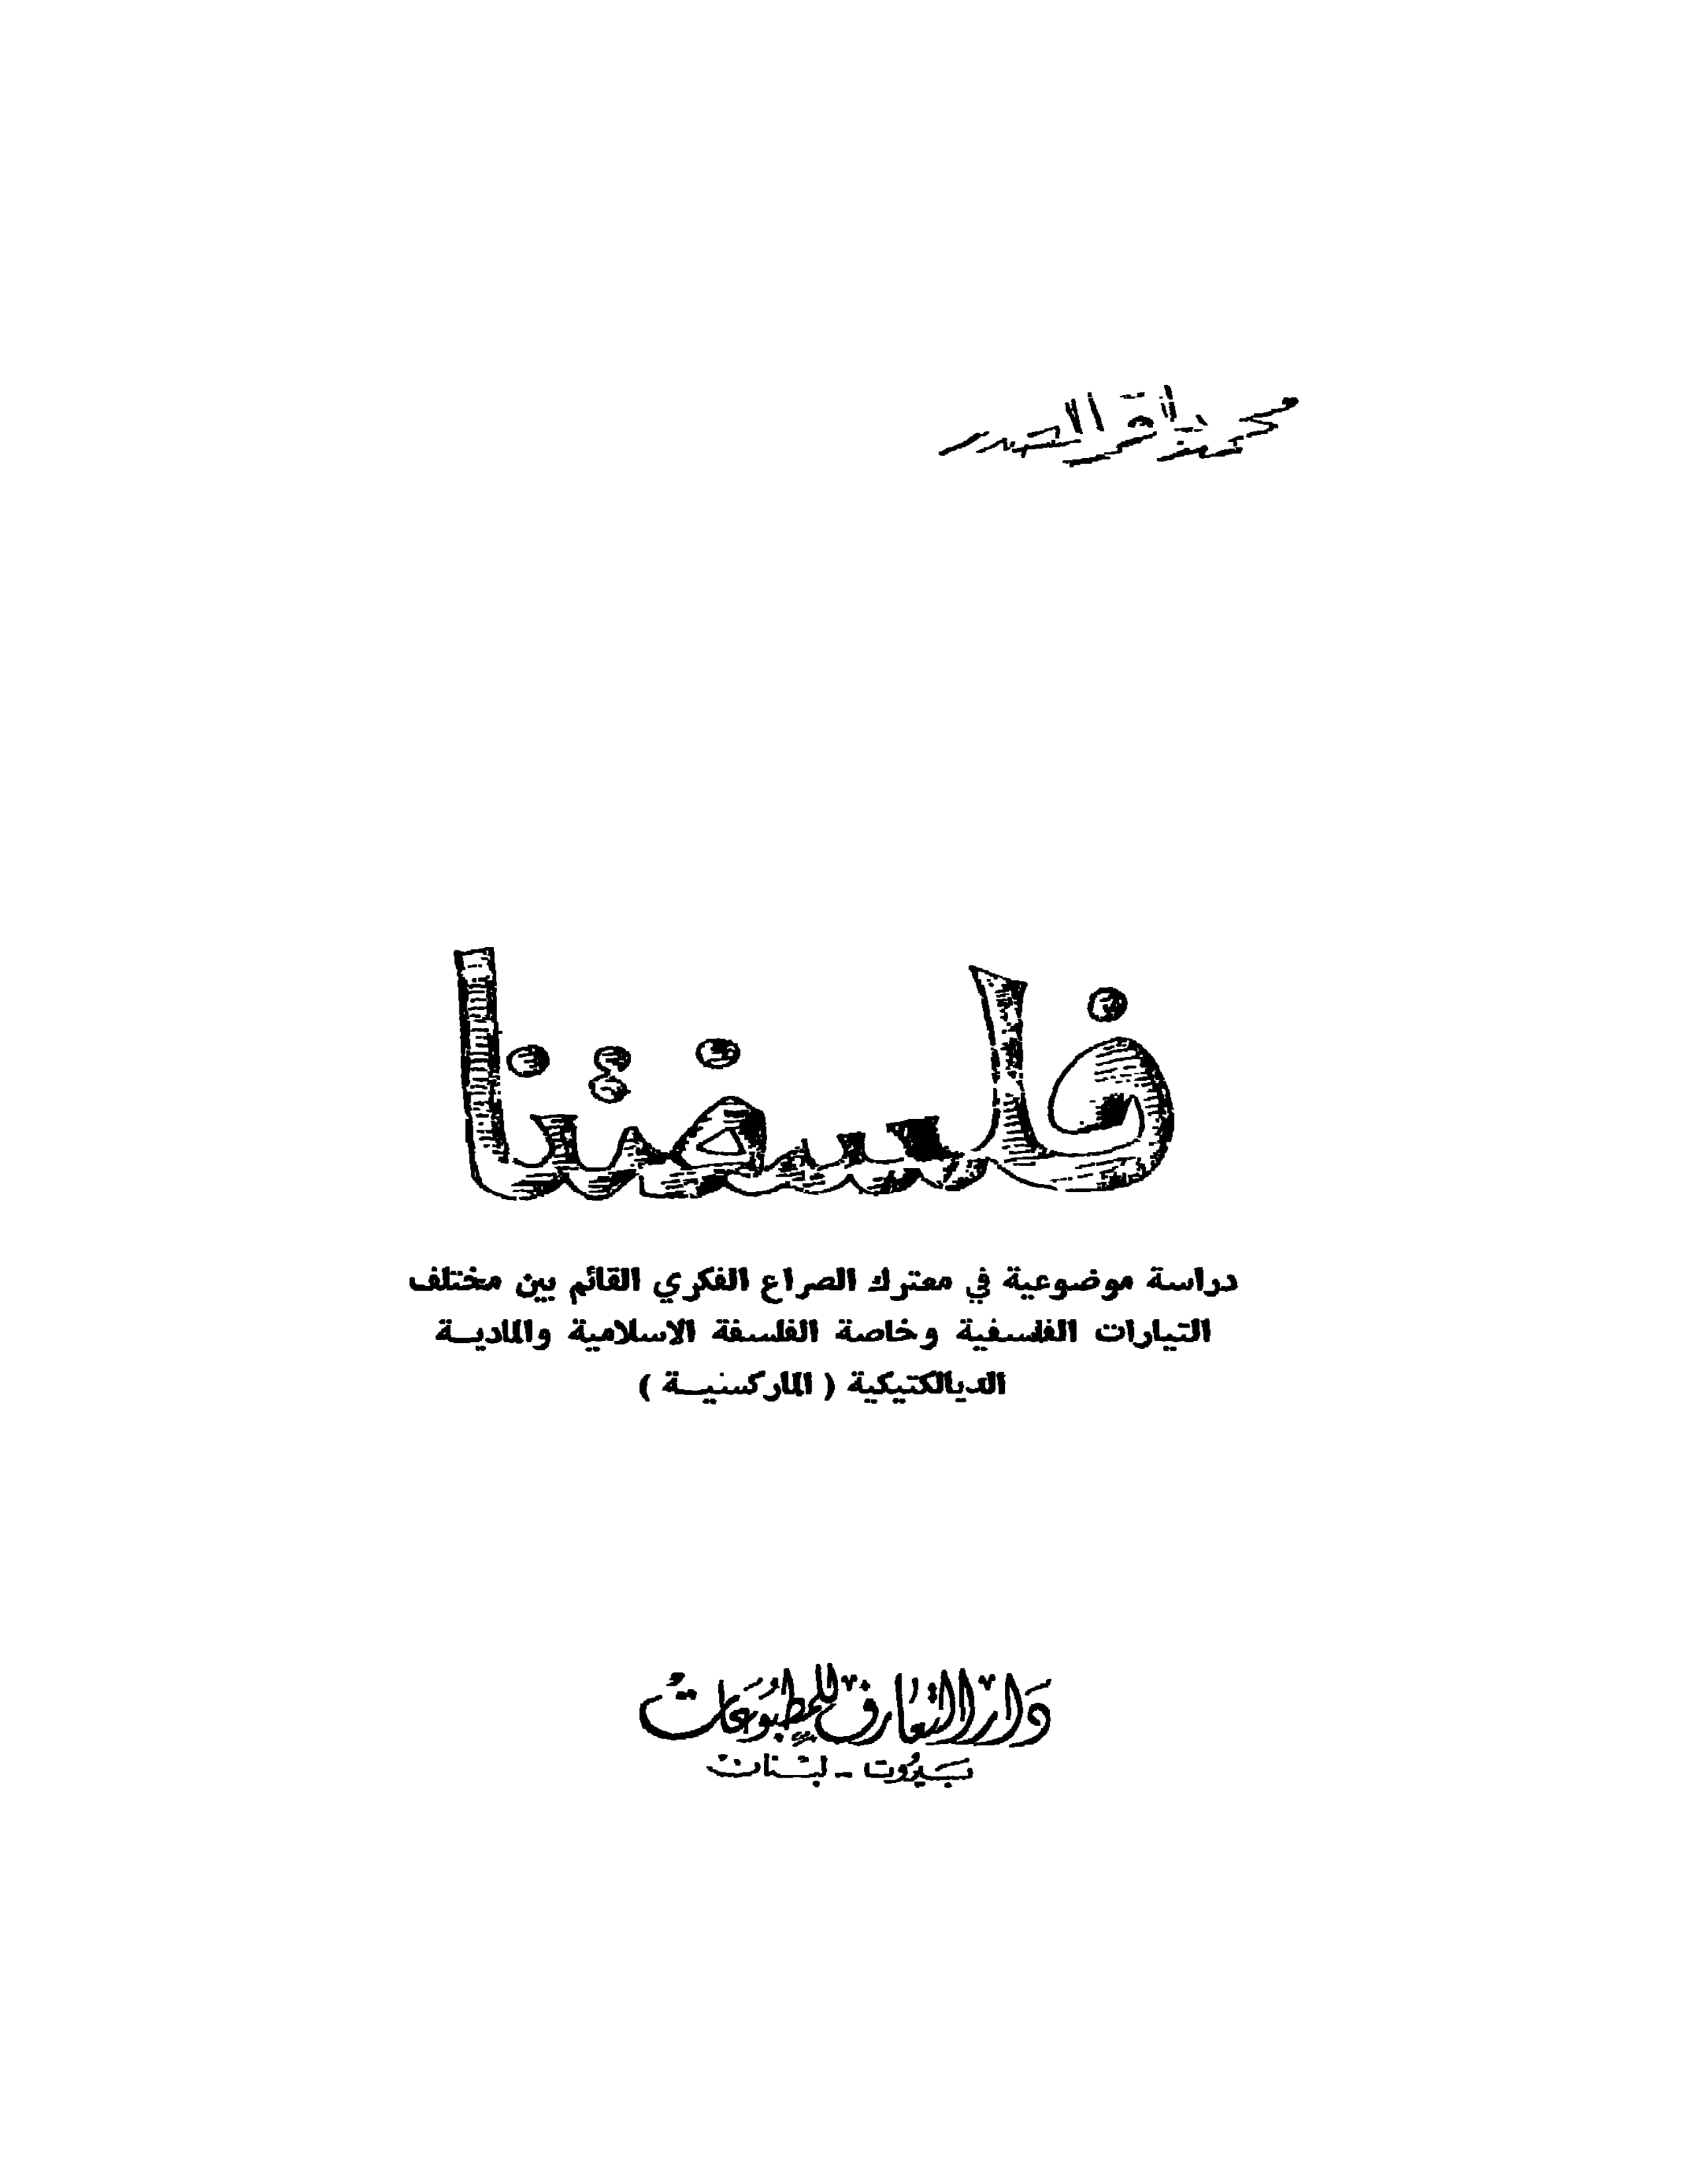 محمد باقر الصدر
فلسفتنا
دراسة موضوعية في معترك الصراع الفكري القائم بين مختلف
التيارات الفلسفية وخاصة الفلسفة الاسلامية والماديـة
الديالكتيكية ( الماركسيـة )
دار التعارف للمطبوعات
بيروت - لبنان